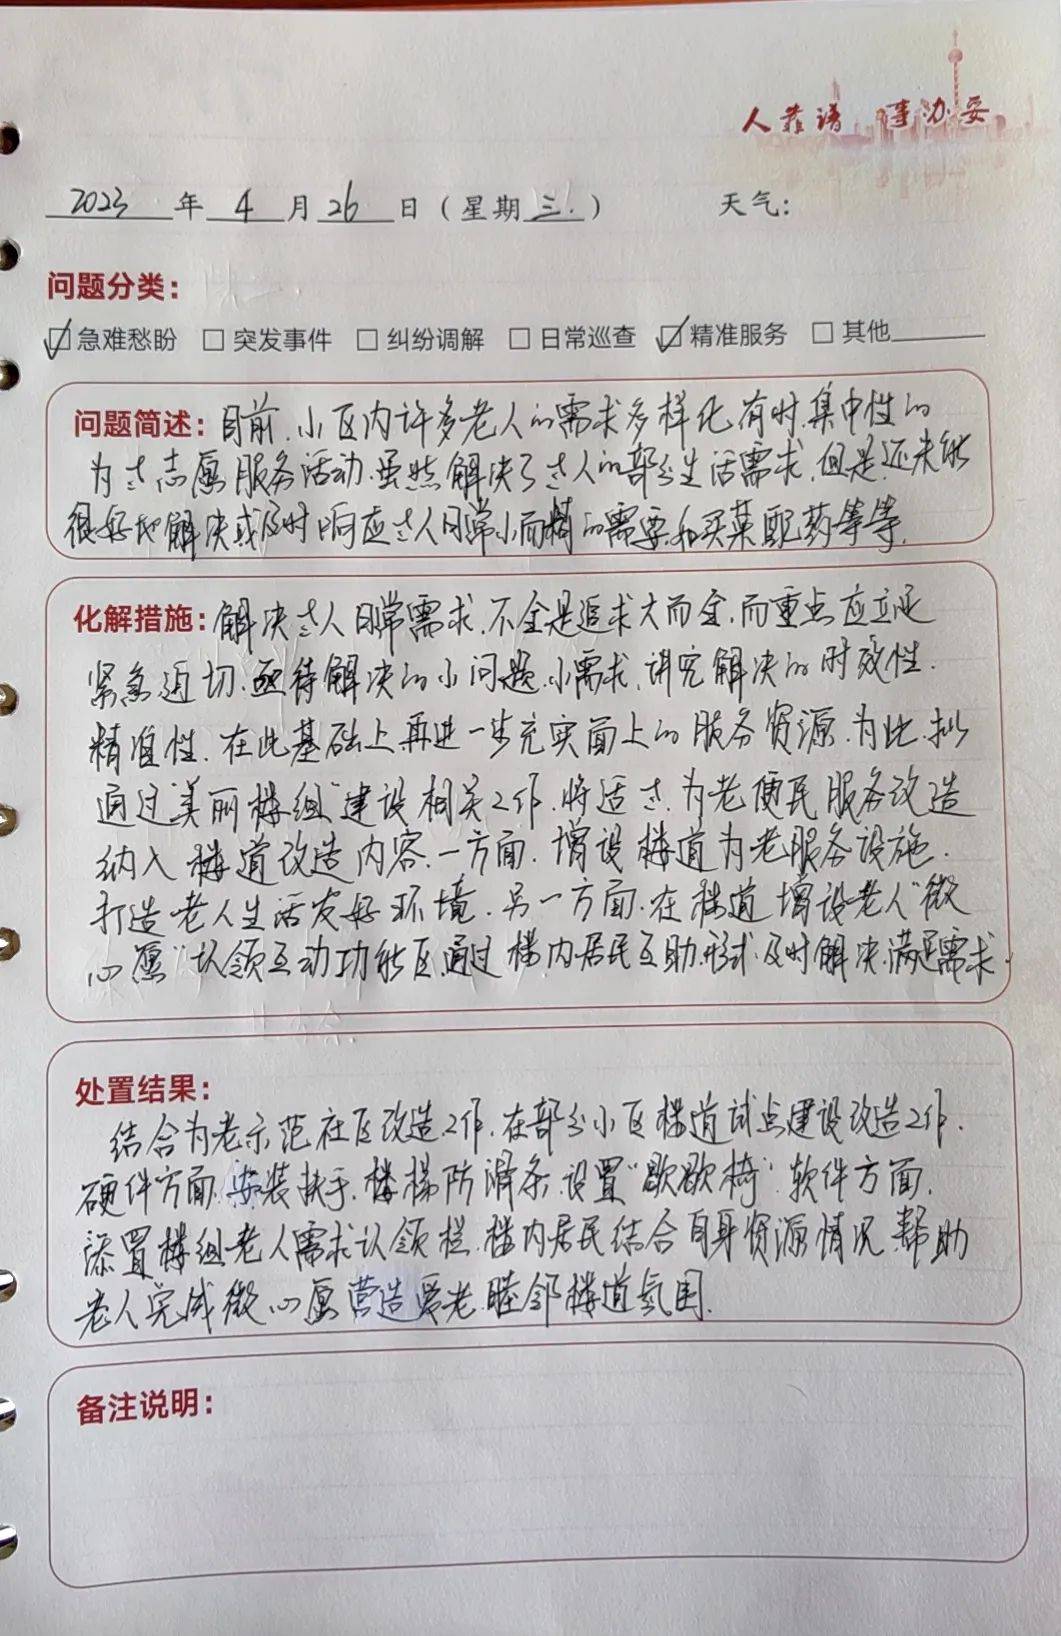 人靠谱 事办妥
2023年4月26日(星期三.) 天气:
问题分类:
☑急难愁盼 □突发事件 □纠纷调解 □日常巡查 ☑精准服务 □其他
问题简述:目前,小区内许多老人的需求多样化,有时,集中性的
为老志愿服务活动,虽然解决了老人的部分生活需求,但是,还未能
很好地解决或及时响应老人日常小而精的需要,如买菜配药等等.
化解措施:解决老人日常需求,不全是追求大而全,而重点应立足
紧急迫切,亟待解决的小问题,小需求,讲究解决的时效性.
精准性.在此基础上再进一步充实面上的服务资源.为此,拟
通过"美丽楼组"建设相关工作,将适老,为老便民服务改造
纳入楼道改造内容.一方面,增设楼道为老服务设施.
打造老人生活友好环境.另一方面,在楼道增设老人"微
心愿"认领互动功能区,通过楼内居民互助形式,及时解决,满足需求.
处置结果:
结合为老示范社区改造工作,在部分小区楼道试点建设改造工作.
硬件方面,安装扶手,楼梯防滑条,设置"歇歇椅".软件方面,
添置楼组老人需求认领栏,楼内居民结合自身资源情况帮助
老人完成微心愿,营造爱老睦邻楼道氛围.
备注说明: